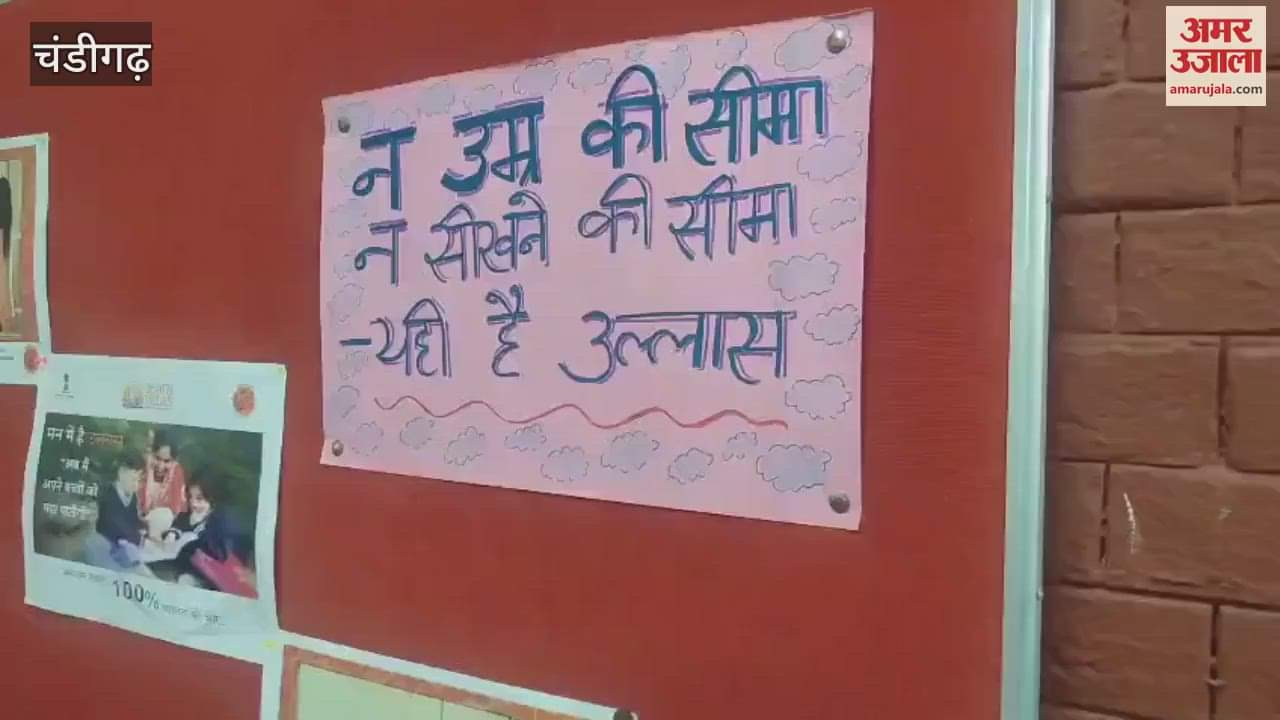 चंडीगढ़
अमर
उजाला
amarujala.com
न उम्र की सीमा
न सीखने की सीमा
-यही है उल्लास
मन में है उल्लास
"अब मैं
अपने बच्चों को
100%